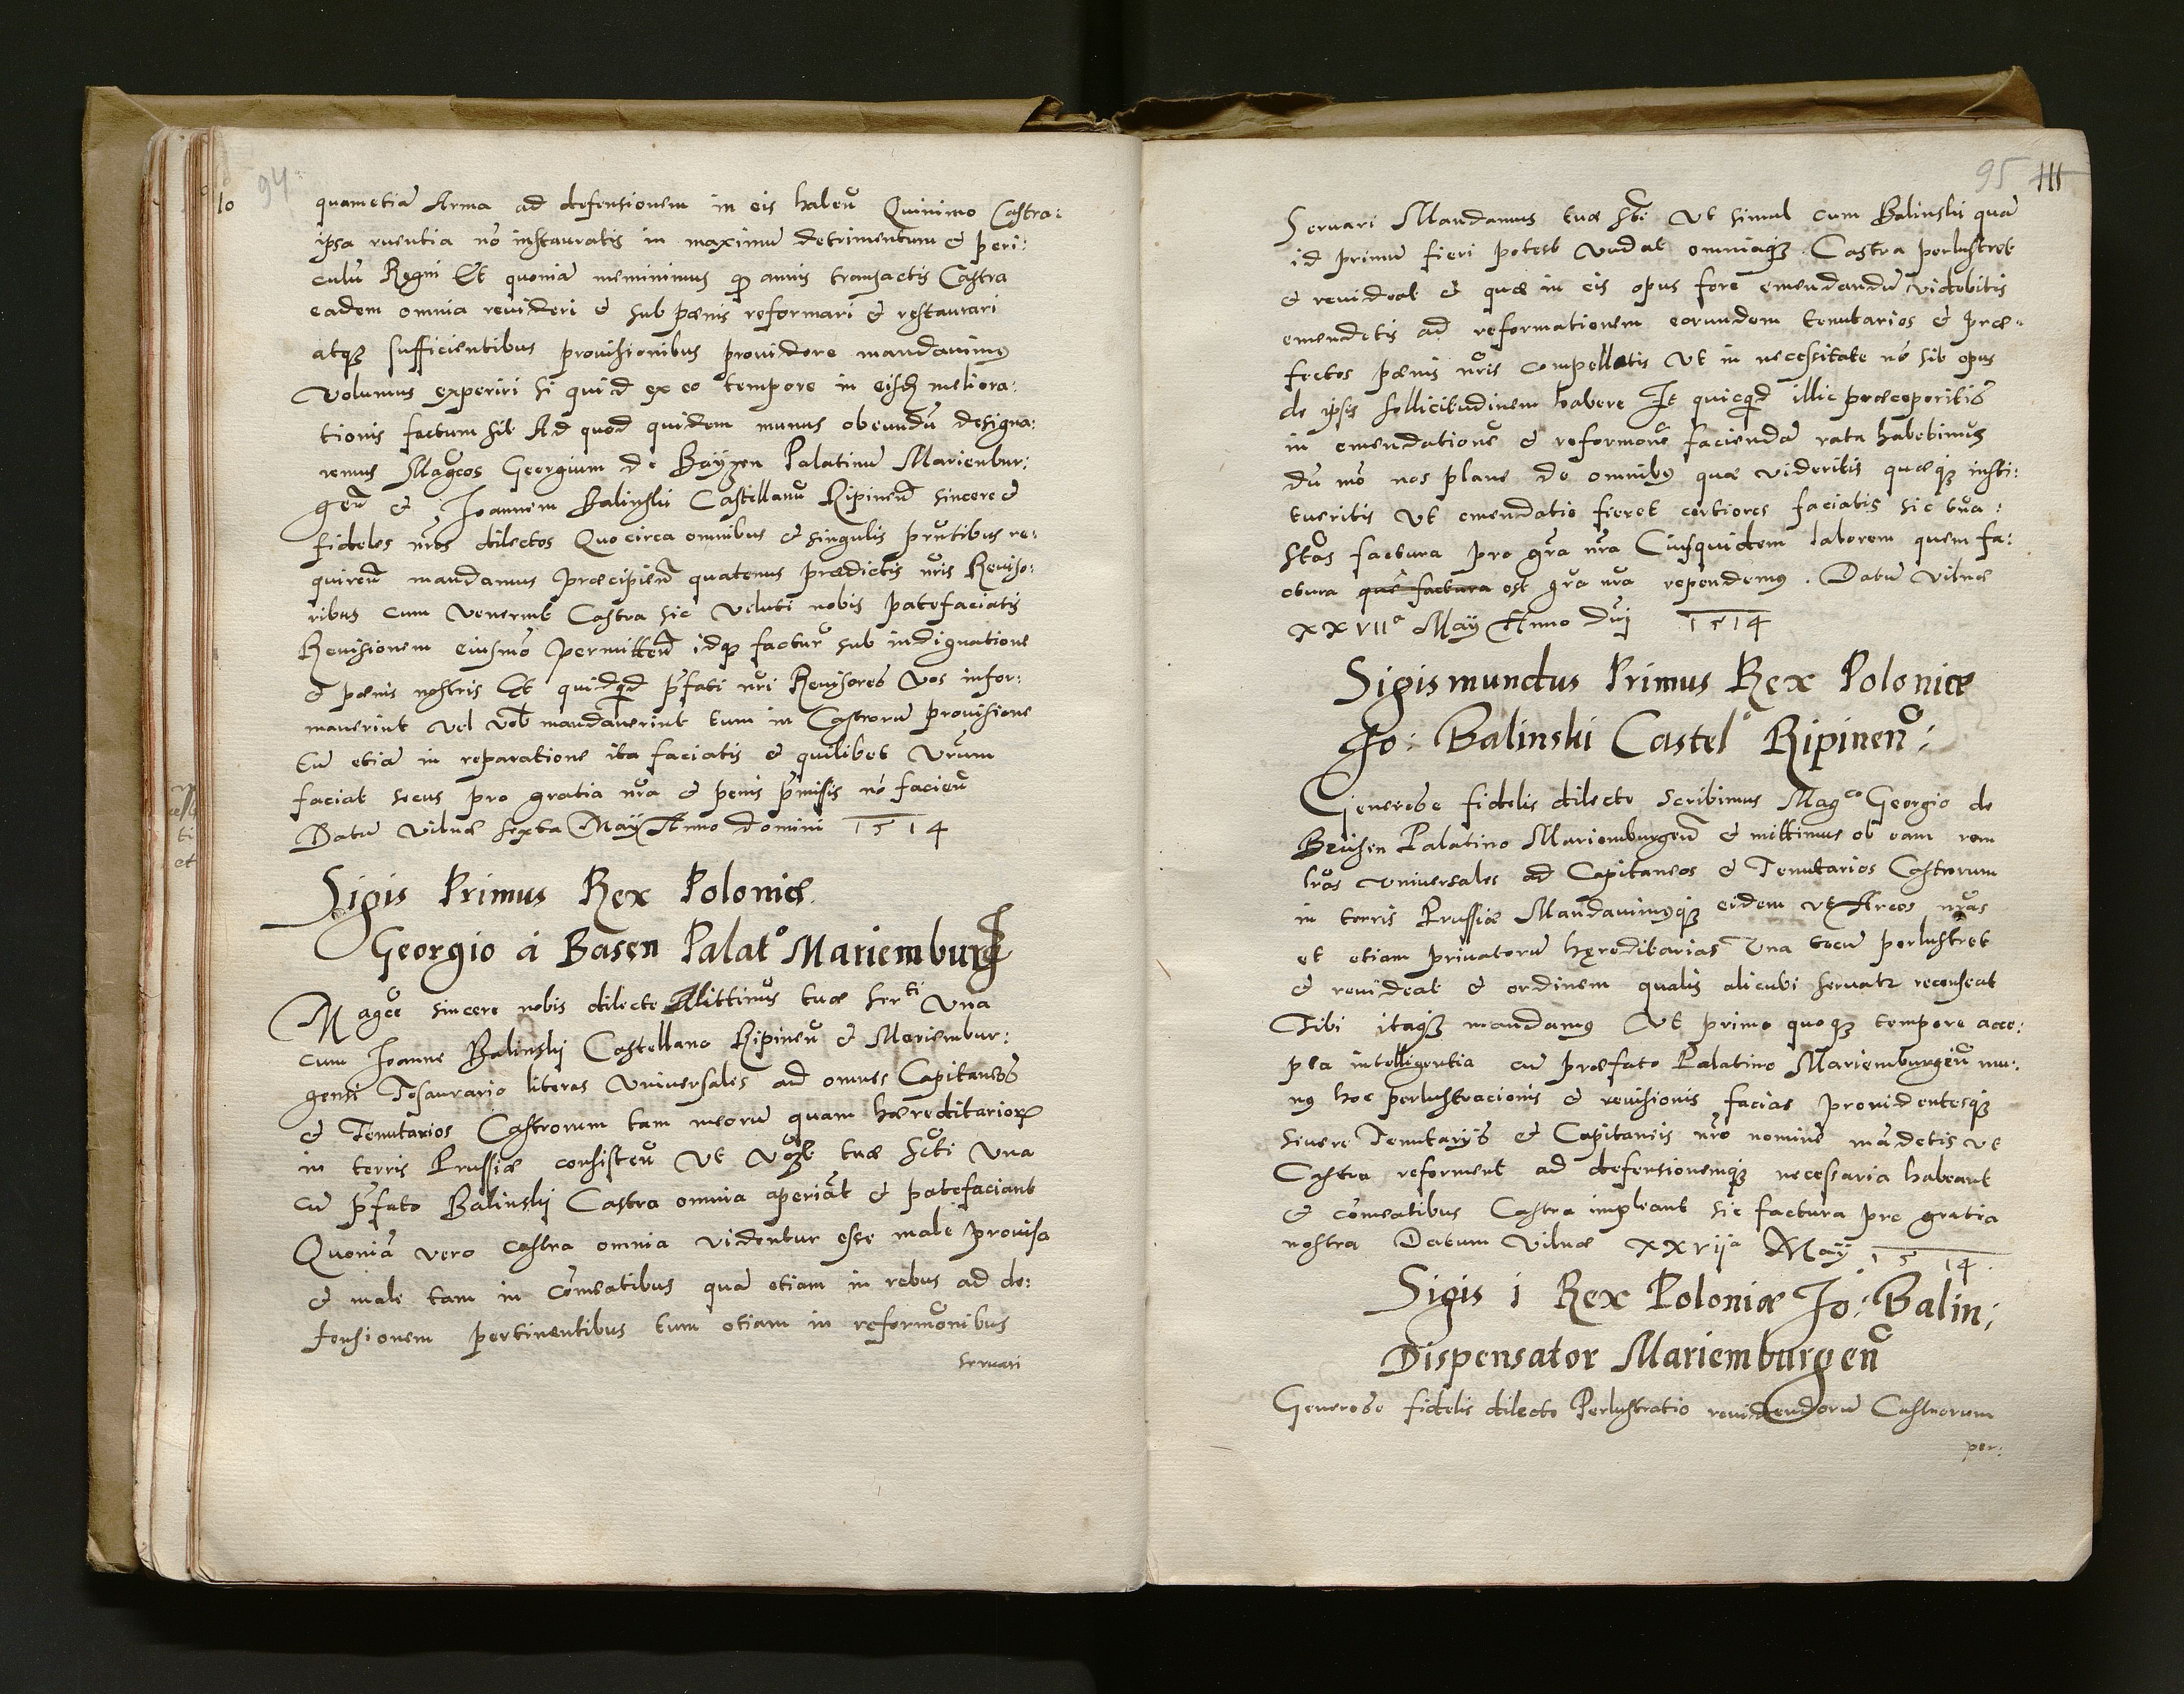 94
quametiã Arma ad defensionem in eis habeñ Quinimo Castra:
ipsa ruentia nõ instauratis in maximũ detrimentum & peri:
culũ Regni Et quoniã meminimus annis transactis Castra
eadem omnia revideri & sub pænis reformari & restaurari
atqȝ sufficientibus provisionibus providere mandavimus
Volumus experiri si quid ex eo tempore in eisd meliora:
tionis factum sit Ad quod quidem munus obeundũ designa:
remus Magcos Georgium de Baÿzen Palatinũ Marienbur:
geñ & Joannem Balinskii Castellanũ Ripineñ sincere &
fideles nros dilectos Quocirca omnibus & singulis pñtibus re:
quireñ mandamus præcipieñ quatenus prædictis nris Reviso:
ribus cum venerint Castra sic veluti nobis patefaciatis
Revisionem eiusmõ permitteñ idqȝ facturi sub indignatione
& pænis nostris Et quidquid p̃fati nri Revisores vos infor:
maverint vel vob mandaverint tum in Castrorũ provisione
tũ etiã in reparatione ita faciatis & quilibet vrũm
faciat secus pro gratia nra & penis p̃missis nõ facieñ
Datũ Vilnæ sexta Maÿ Anno domini 1514
Sigis Primus Rex Poloniæ
Georgio á Basen Palatº Mariemburg
Magce sincere nobis dilecte Mittimus tuæ Ser^ti una
cum Joanne Balinskij Castellano Ripineñ & Mariembur:
gensi Tesaurario literas Universales ad omnes Capitaneos
& Tenutarios Castrorum tam meorũ quam hæreditarior
in terris Prussiæ consisteñ Ut tuæ Scti una
cũ p̃fato Balinskij Castra omnia aperiãt & patefaciant
Quoniã vero castra omnia videntur esse male provisa
& male tam in com̃eatibus quã etiam in rebus ad de:
fensionem pertinentibus tum etiam in reformõnibus
servari
95 111
Servari Mandamus tuæ Sti Ut simul cum Balinskii quã
id primũ fieri potest vadat omniaqȝ Castra perlustret
& revideat & quæ in eis opus fore emendandũ videbitis
emendetis ad reformationem eorundem tenutarios & præ-
fectos pænis nris compellatis Ut in necessitate nõ sit opus
de ipsis sollicitudinem habere Et quicqd illic præceperitis
in emendationẽ & reformonẽ faciendã rata habebimus
dũ mõ nos plane de omnibus quæ videritis quæqȝ insti:
tueritis Ut emendatio fieret certiores faciatis sic tua:
Stas factura pro gra nra Ciusquidem laborem quem fa:
ctura que factura est gra nra rependemus. Datũ Vilnæ
XXVIIª Maÿ Anno Dnj 1514
Sigismundus Primus Rex Poloniæ
Jo: Balinski Castel° Ripineñ:
Generose fidelis dilecte Scribimus Mag^co Georgio de
Beisen Palatino Mariemburgeñ & mittimus ob eam rem
lras universales ad Capitaneos & Tenutarios Castrorum
in terris Prussiæ Mandavimusqȝ eidem Ut Arces nras
et etiam privatorũ hęreditarias Una tecũ perlustret
& revideat & ordinem qualis alicubi servatr recenseat
Tibi itaqȝ mandamus Ut primo quoqȝ tempore acce:
pta intelligentia cũ præfato Palatino Mariemburgeñ mu:
nus hoc perlustracionis & revisionis facias providentesqȝ
Sivere Tenutarÿs & Capitaneis nro nominẽ mãdetis ut
Castra reforment ad defensionemqȝ necessaria habeant
& com̃eatibus Castra impleant sic factura pro gratia
nostra Datum Vilnæ XXVIJª Maÿ 1514.
Sigis i Rex Poloniæ Jo: Balin:
Dispensator Mariemburgeñ
Generose fidelis dilecte Perlustratio revidendorũ Castrorum
per: